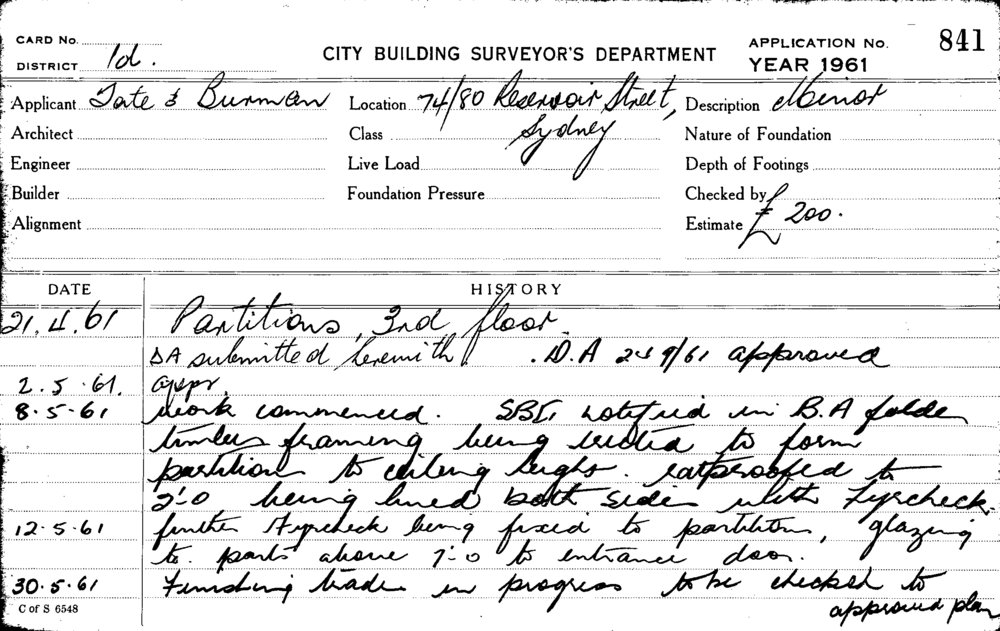 CARD No.
DISTRICT 1d.
CITY BUILDING SURVEYOR'S DEPARTMENT
APPLICATION No. 841
YEAR 1961
Applicant Tate & Burman
Location 74/80 Reservoir Street, Sydney
Description Minor
Architect
Class
Nature of Foundation
Engineer
Live Load
Depth of Footings
Builder
Foundation Pressure
Checked by
Alignment
Estimate £200.
DATE HISTORY
21.4.61 Partitions, 3rd floor.
DA submitted herewith. D.A 249/61 approved
2.5.61. appr.
8.5.61 Work commenced. SBI, notified in B.A folder
timber framing being erected to form
partition to ceiling height. ratproofed to
2'0 being lined both sides with Fyrcheck.
12.5.61 further Fyrcheck being fixed to partitions, glazing
to parts above 7'-0 to entrance door.
30.5.61 Finishing trades in progress to be checked to
approved plan
C of S 6548